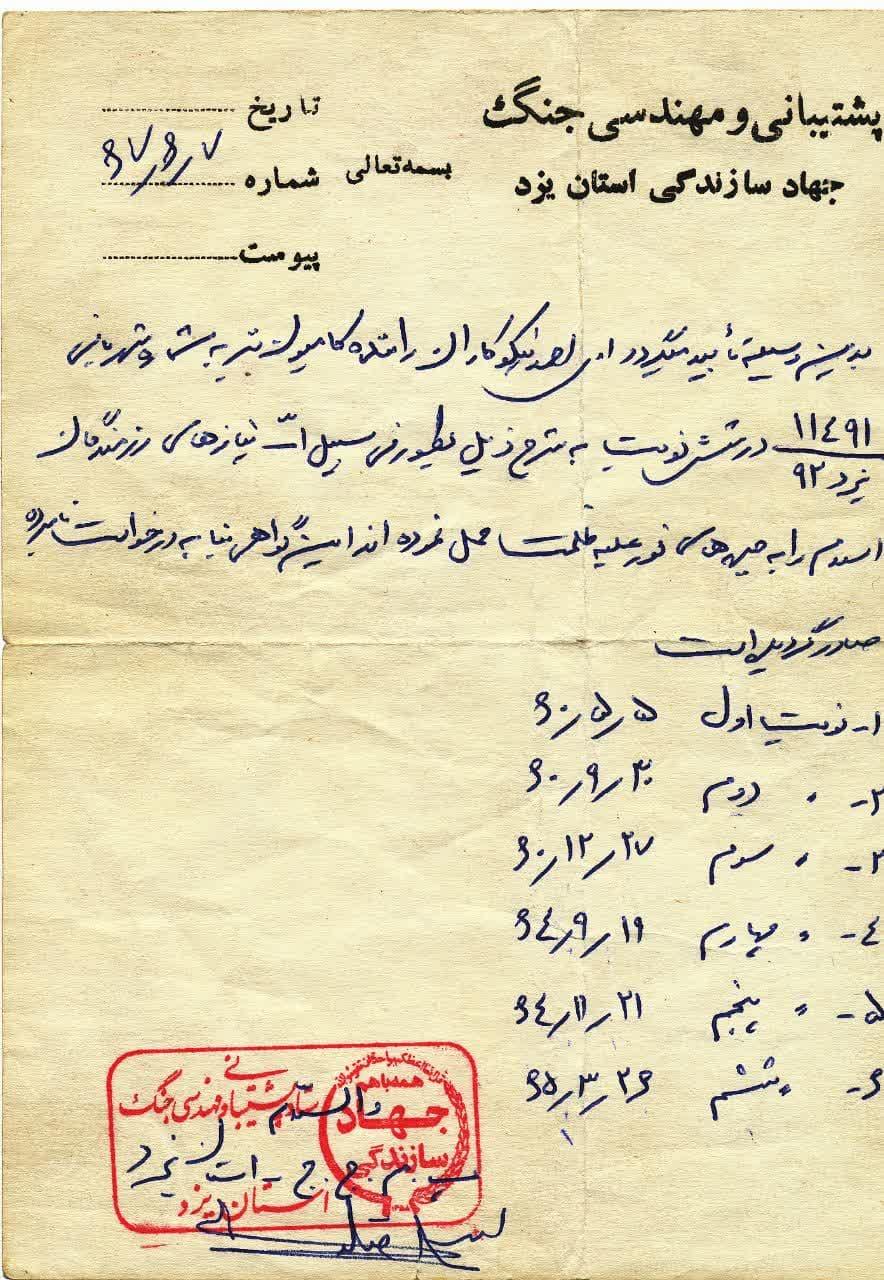 پشتیبانی و مهندسی جنگ
جهاد سازندگی استان یزد
بسمه تعالی
تاریخ
شماره ۶۷/۶/۷
پیوست
بدینوسیله تأیید میگردد نیکوکاران راننده کامیون به شماره شهربانی
۱۱٤۹۱ / یزد ۹۲ در شش نوبت به شرح ذیل بطور فی سبیل الله نیازهای رزمندگان
اسلام را به جبهه های نور علیه ظلمت حمل نموده اند این گواهی بنا به درخواست نامبرده
صادر گردیده است
۱- نوبت اول ۶۰/۵/۵
۲- " دوم ۶۰/۹/۳۰
۳- " سوم ۶۰/۱۲/۲۷
٤- " چهارم ۶٤/۹/۱۹
۵- " پنجم ۶٤/۱۱/۲۱
۶- " ششم ۶۵/۳/۲۶
والسلام
ستاد پشتیبانی و مهندسی جنگ
همه با هم
جهاد
سازندگی
استان یزد
پ.م.ج.ج - استان یزد